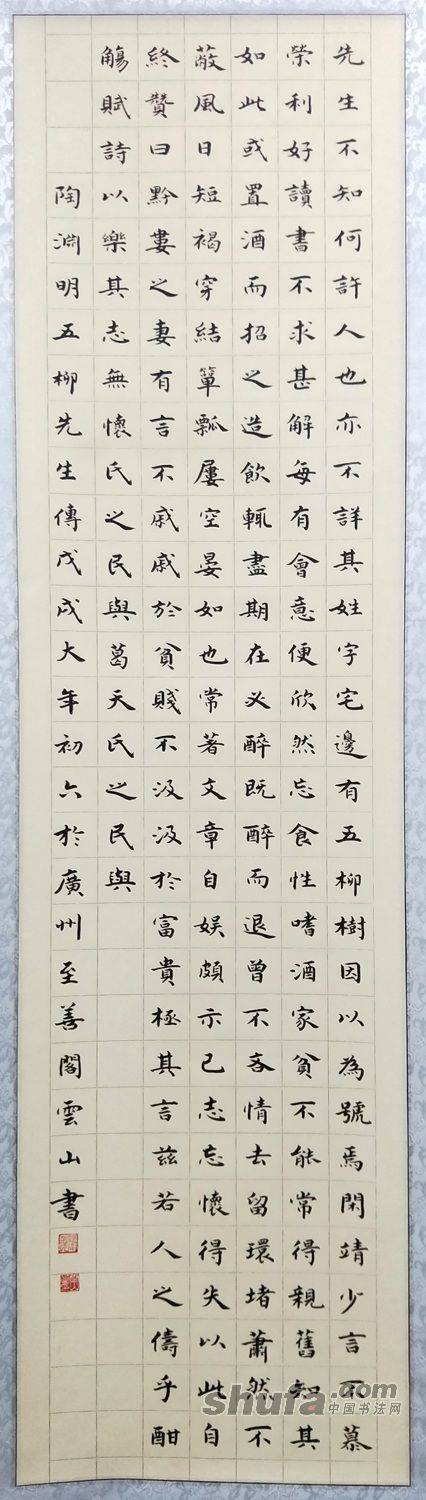 先生不知何許人也亦不詳其姓字宅邊有五柳樹因以為號焉閑靖少言不慕
榮利好讀書不求甚解每有會意便欣然忘食性嗜酒家貧不能常得親舊知其
如此或置酒而招之造飲輒盡期在必醉既醉而退曾不吝情去留環堵蕭然不
蔽風日短褐穿結簞瓢屢空晏如也常著文章自娛頗示己志忘懷得失以此自
終贊曰黔婁之妻有言不戚戚於貧賤不汲汲於富貴極其言茲若人之儔乎酣
觴賦詩以樂其志無懷氏之民與葛天氏之民與
陶淵明五柳先生傳戊戌大年初六於廣州至善閣雲山書
shufa.com
中国书法网